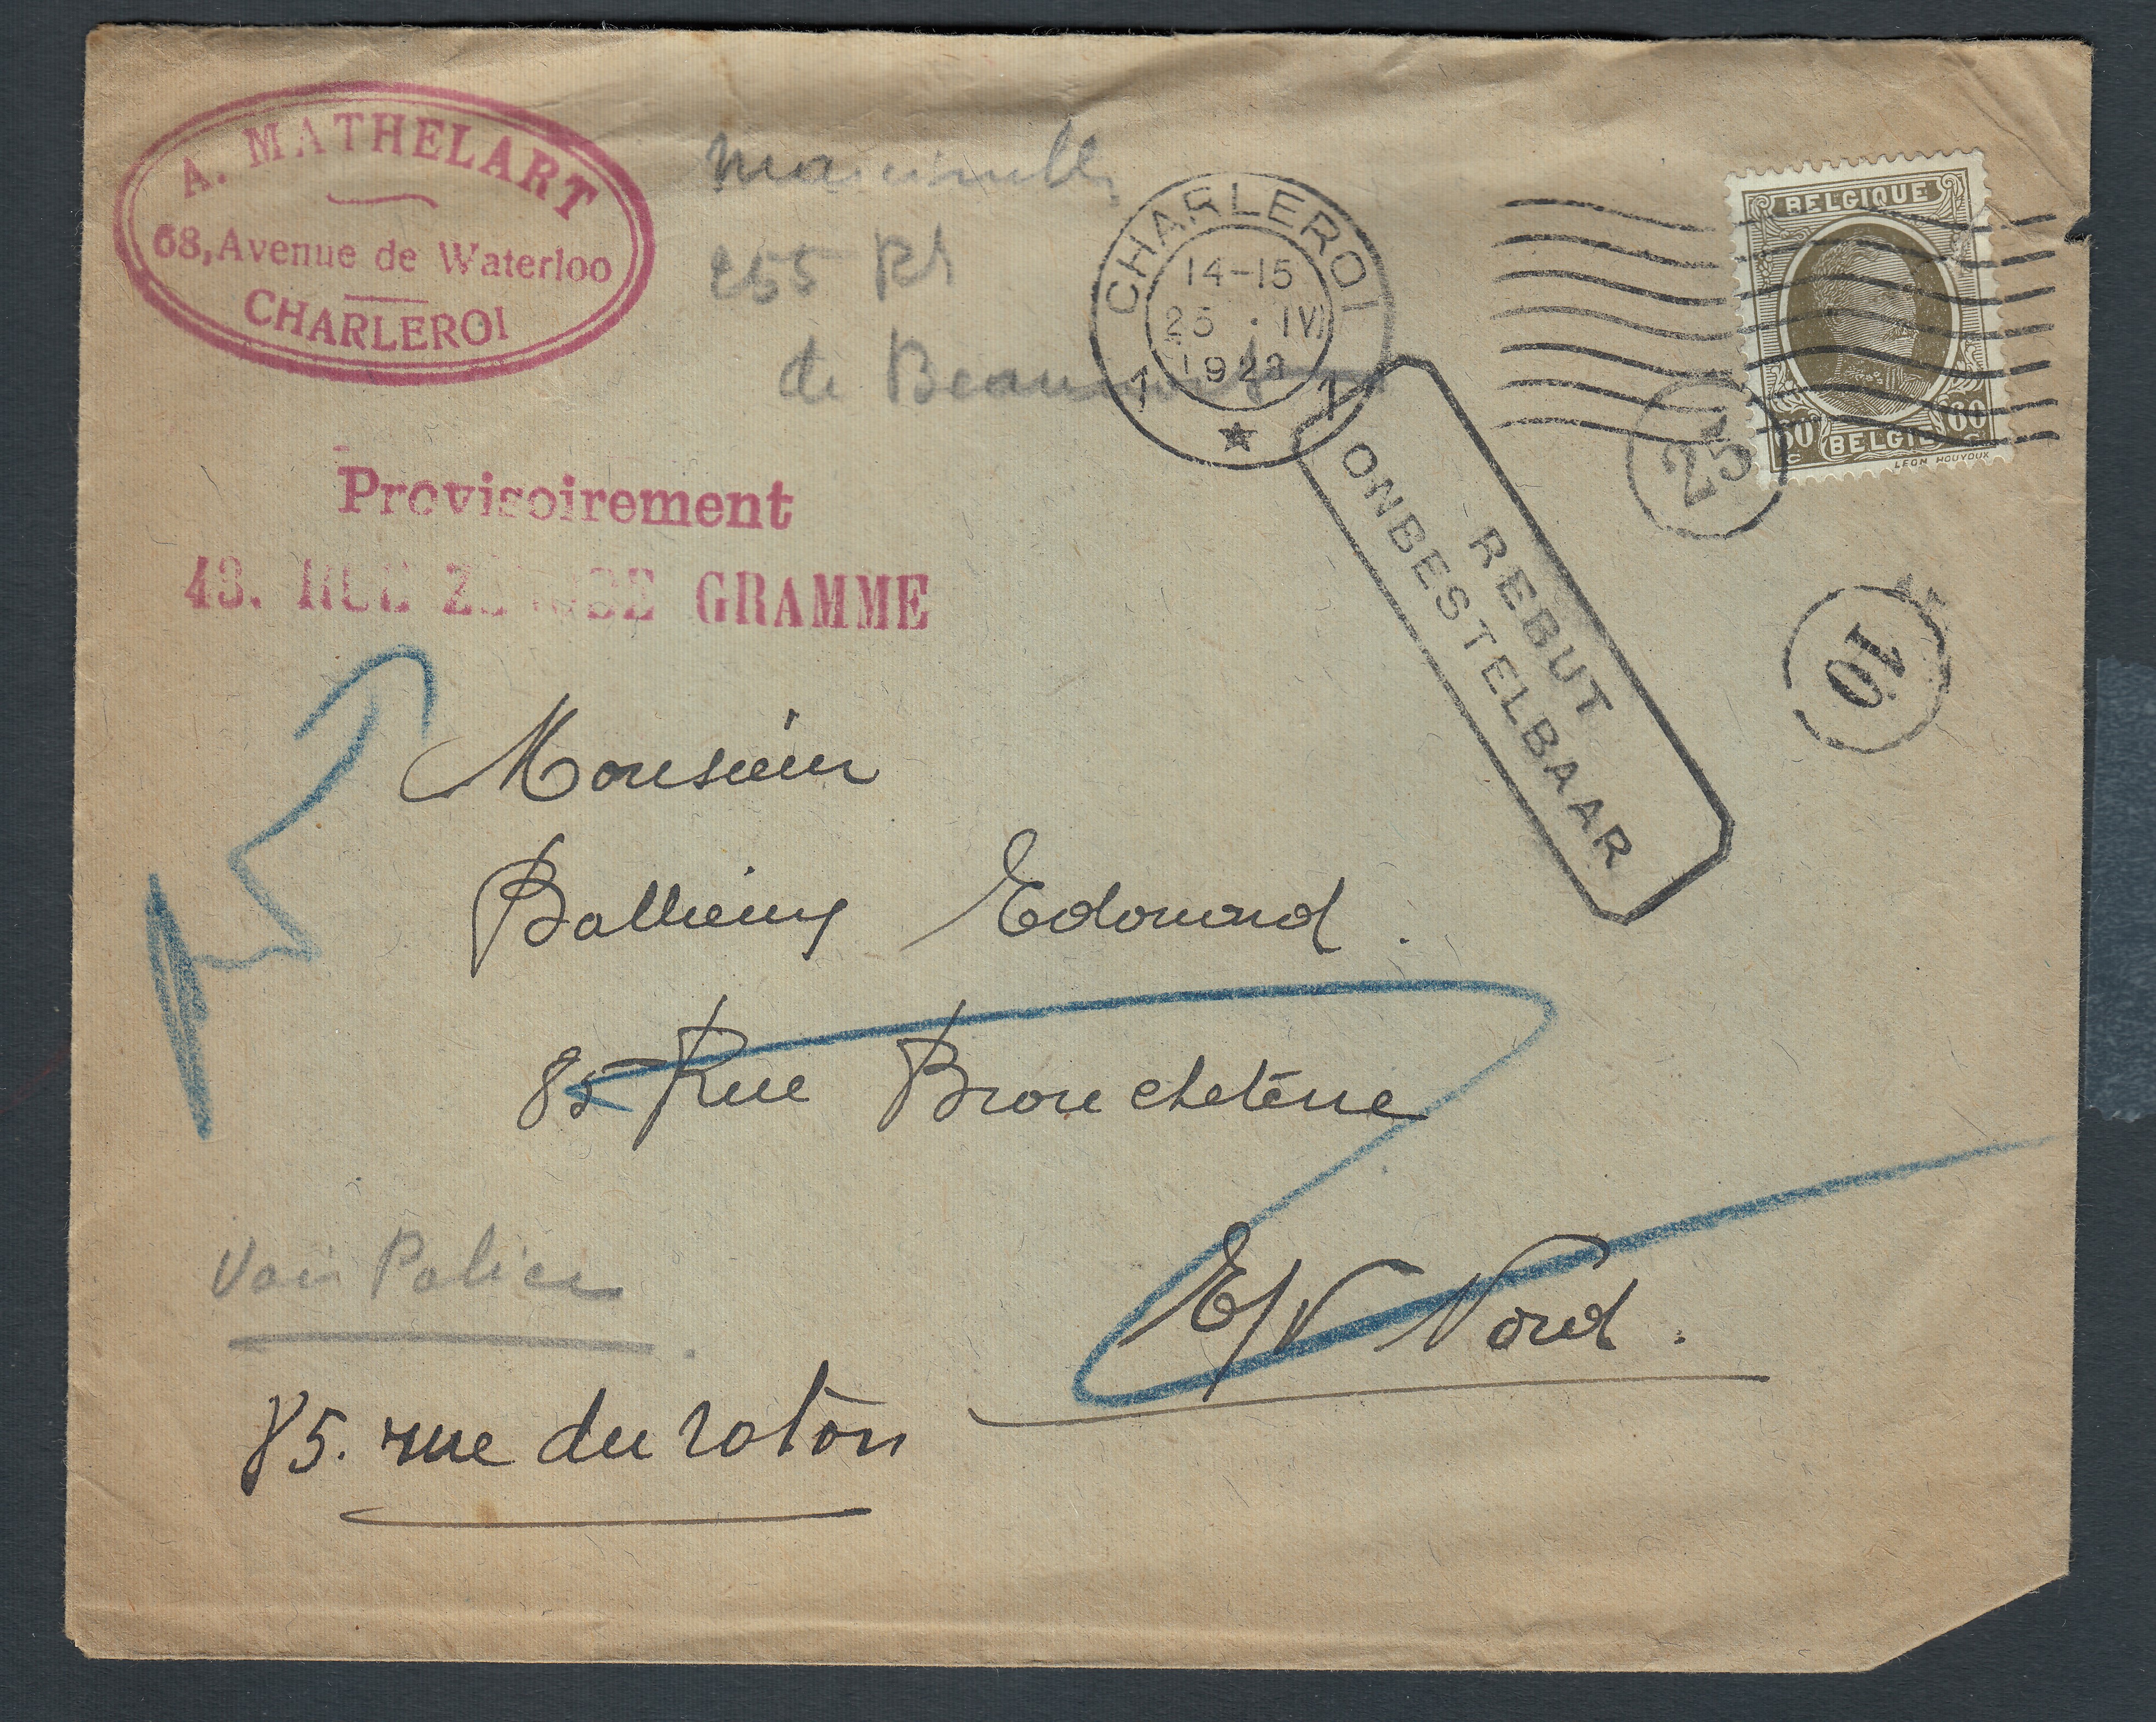 A. MATHELART
68, Avenue de Waterloo
CHARLEROI
Marcinelle
255 Rt
de Beaumont
CHARLEROI
14-15
25 . IV
192
1 1
BELGIQUE
60 60
c BELGIË c
LEON HOUYOUX
25
10
REBUT
ONBESTELBAAR
Provisoirement
43. RUE ZENOBE GRAMME
Monsieur
Ballieux Edouard.
85 Rue Broucheterre
E/V Nord.
Voir Police
85. rue du roton